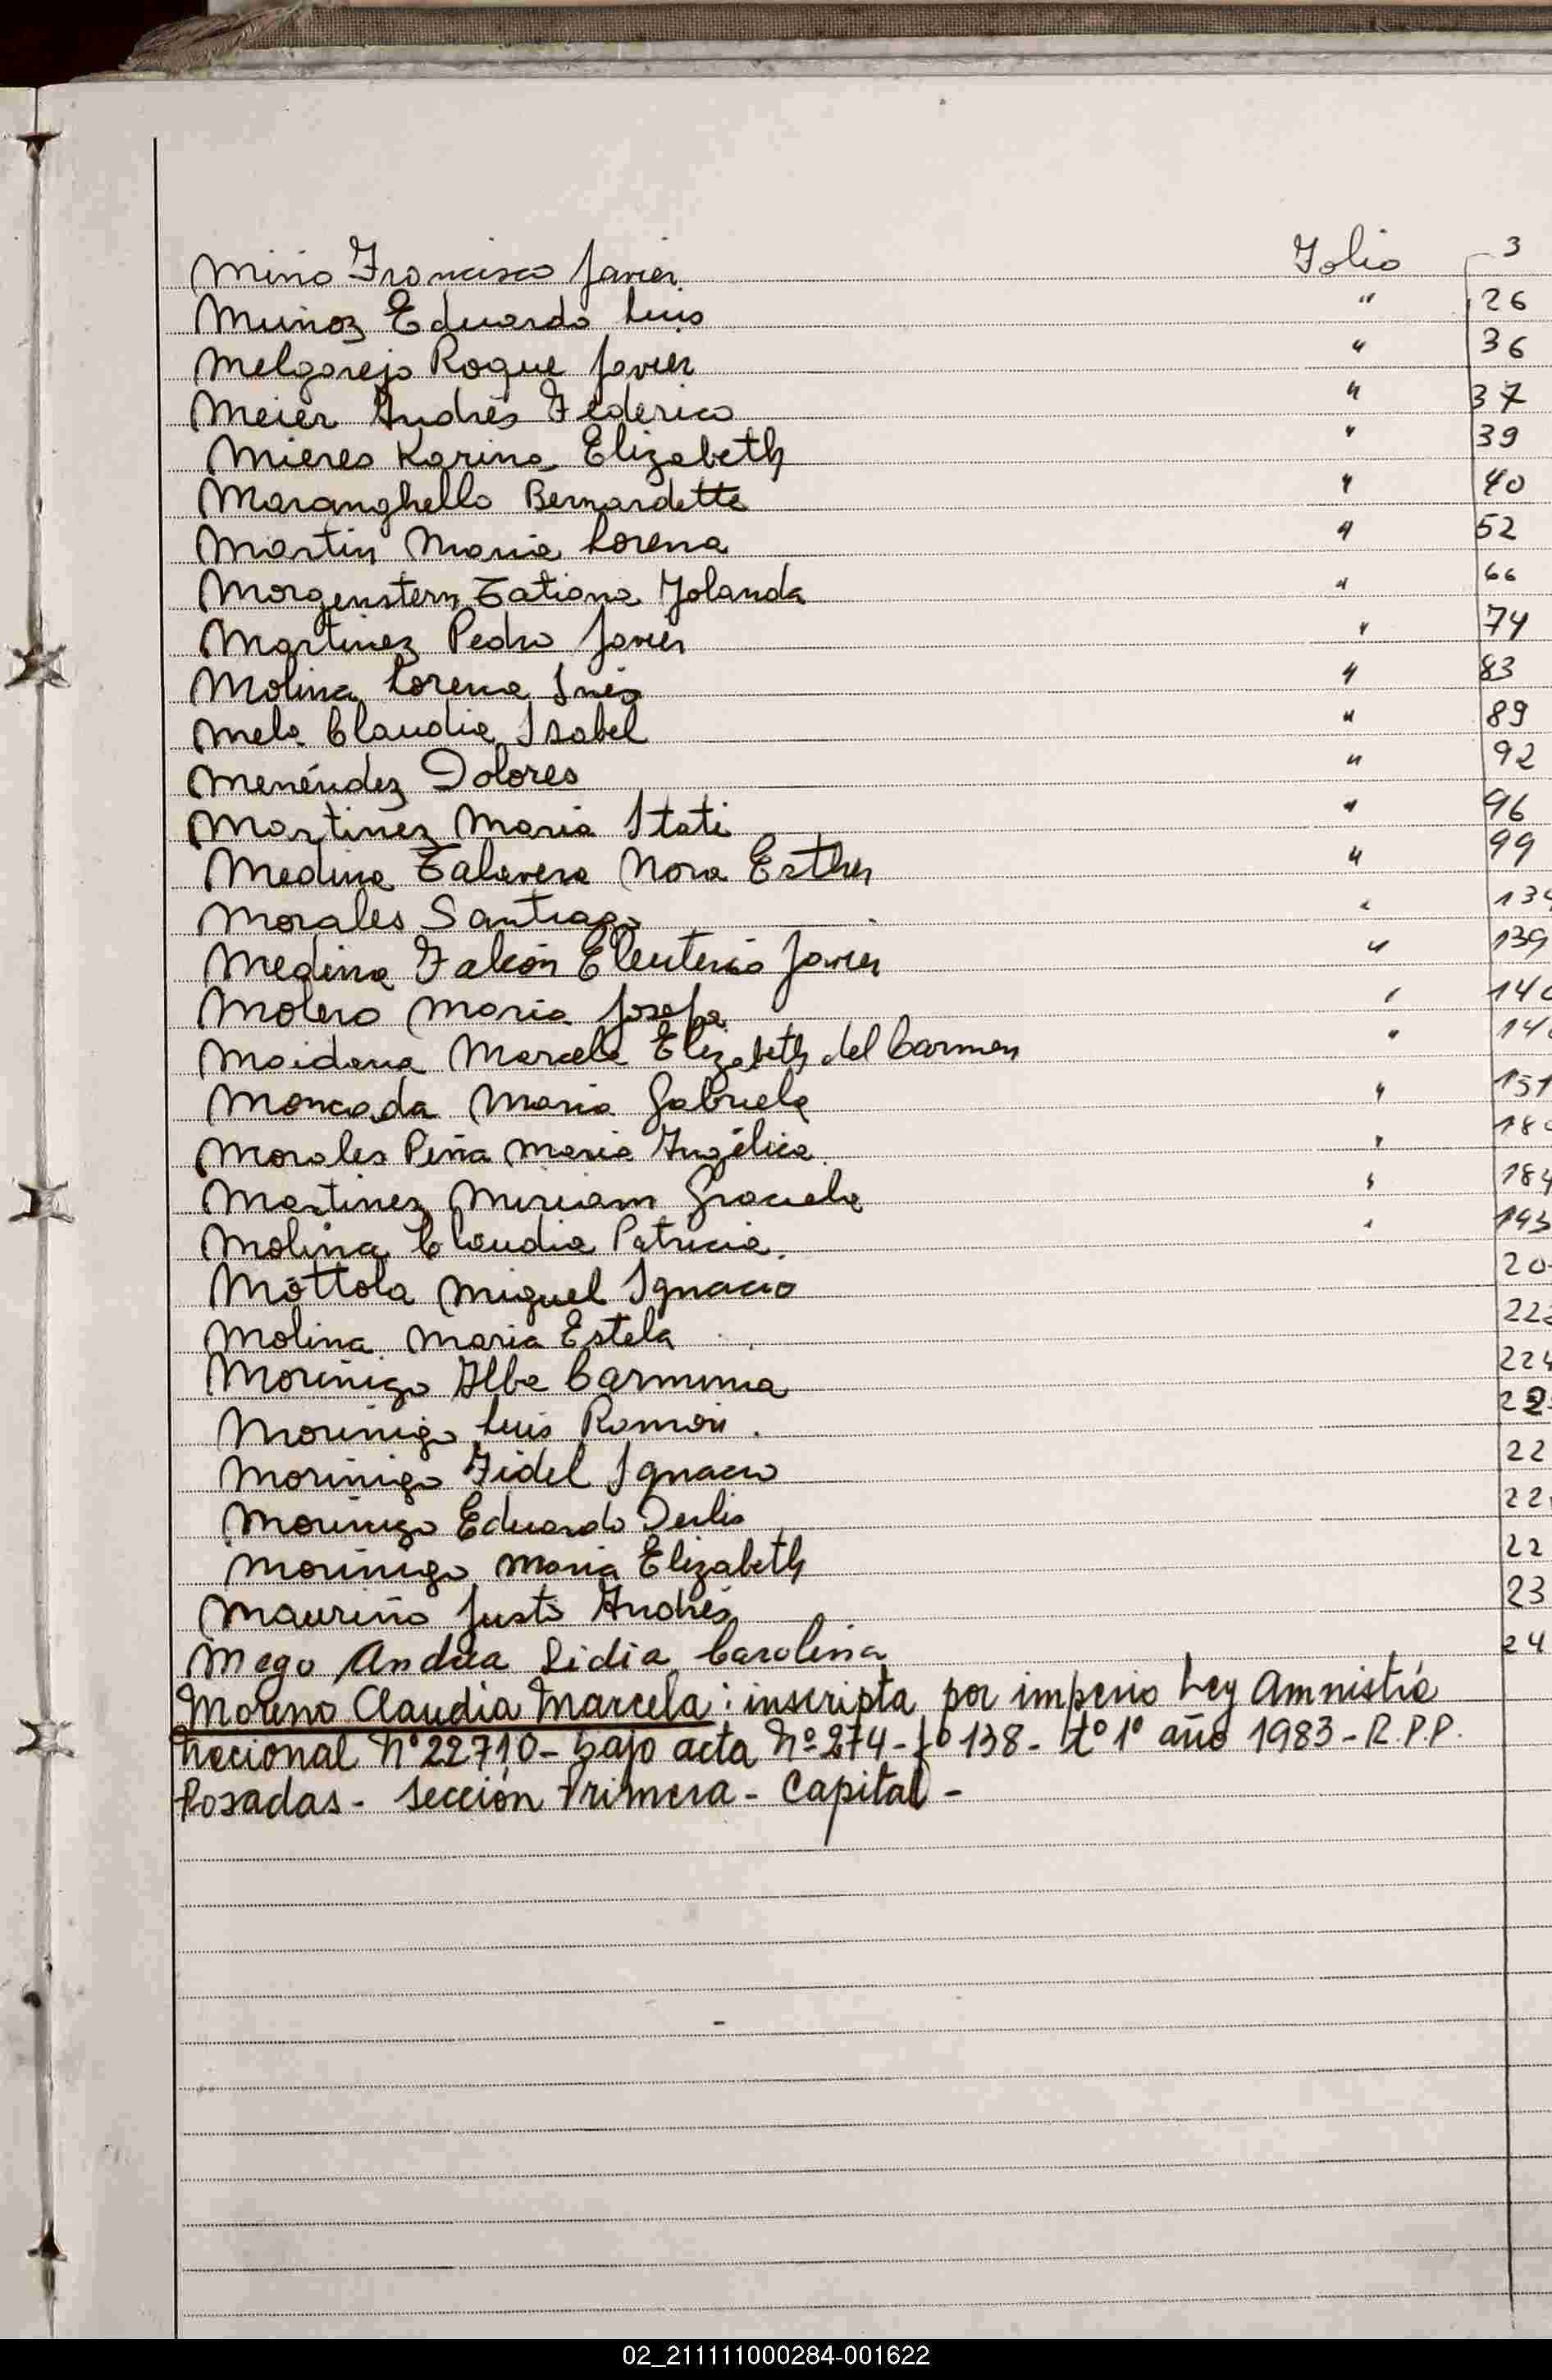 Miño Francisco Javier. Folio 3
Muñoz Eduardo Luis " 26
Melgarejo Roque Javier " 36
Meier Andrés Federico " 37
Mieres Karina Elizabeth " 39
Maranghello Bernardette " 40
Martin Maria Lorena " 52
Morgenstern Tatiana Yolanda " 66
Martinez Pedro Javier " 74
Molina Lorena Inés " 83
Melo Claudia Isabel " 89
Menéndez Dolores " 92
Martinez Maria Itati " 96
Medina Talavera Nora Esther " 99
Morales Santiago " 134
Medina Falcón Eleuterio Javier " 139
Molero Maria Josefa " 140
Maidana Marcela Elizabeth del Carmen " 14
Moncada Maria Gabriela " 151
Morales Peña Maria Angélica. " 18
Martinez Miriam Graciela " 184
Molina Claudia Patricia. " 193
Móttola Miguel Ignacio 20
Molina Maria Estela 22
Moriñigo Alba Carmiña 224
Moriñigo Luis Ramón. 22
Moriñigo Fidel Ignacio 22
Moriñigo Eduardo Derlis 22
Moriñigo Maria Elizabeth 22
Mauriño Justo Andrés 23
Mego Andrea Lidia Carolina 24
Moreno Claudia Marcela: inscripta por imperio Ley Amnistía
Nacional Nº 22710- bajo acta Nº 274- fº 138- tº 1º año 1983- R.P.P.
Posadas- Sección Primera- Capital-
02_211111000284-001622